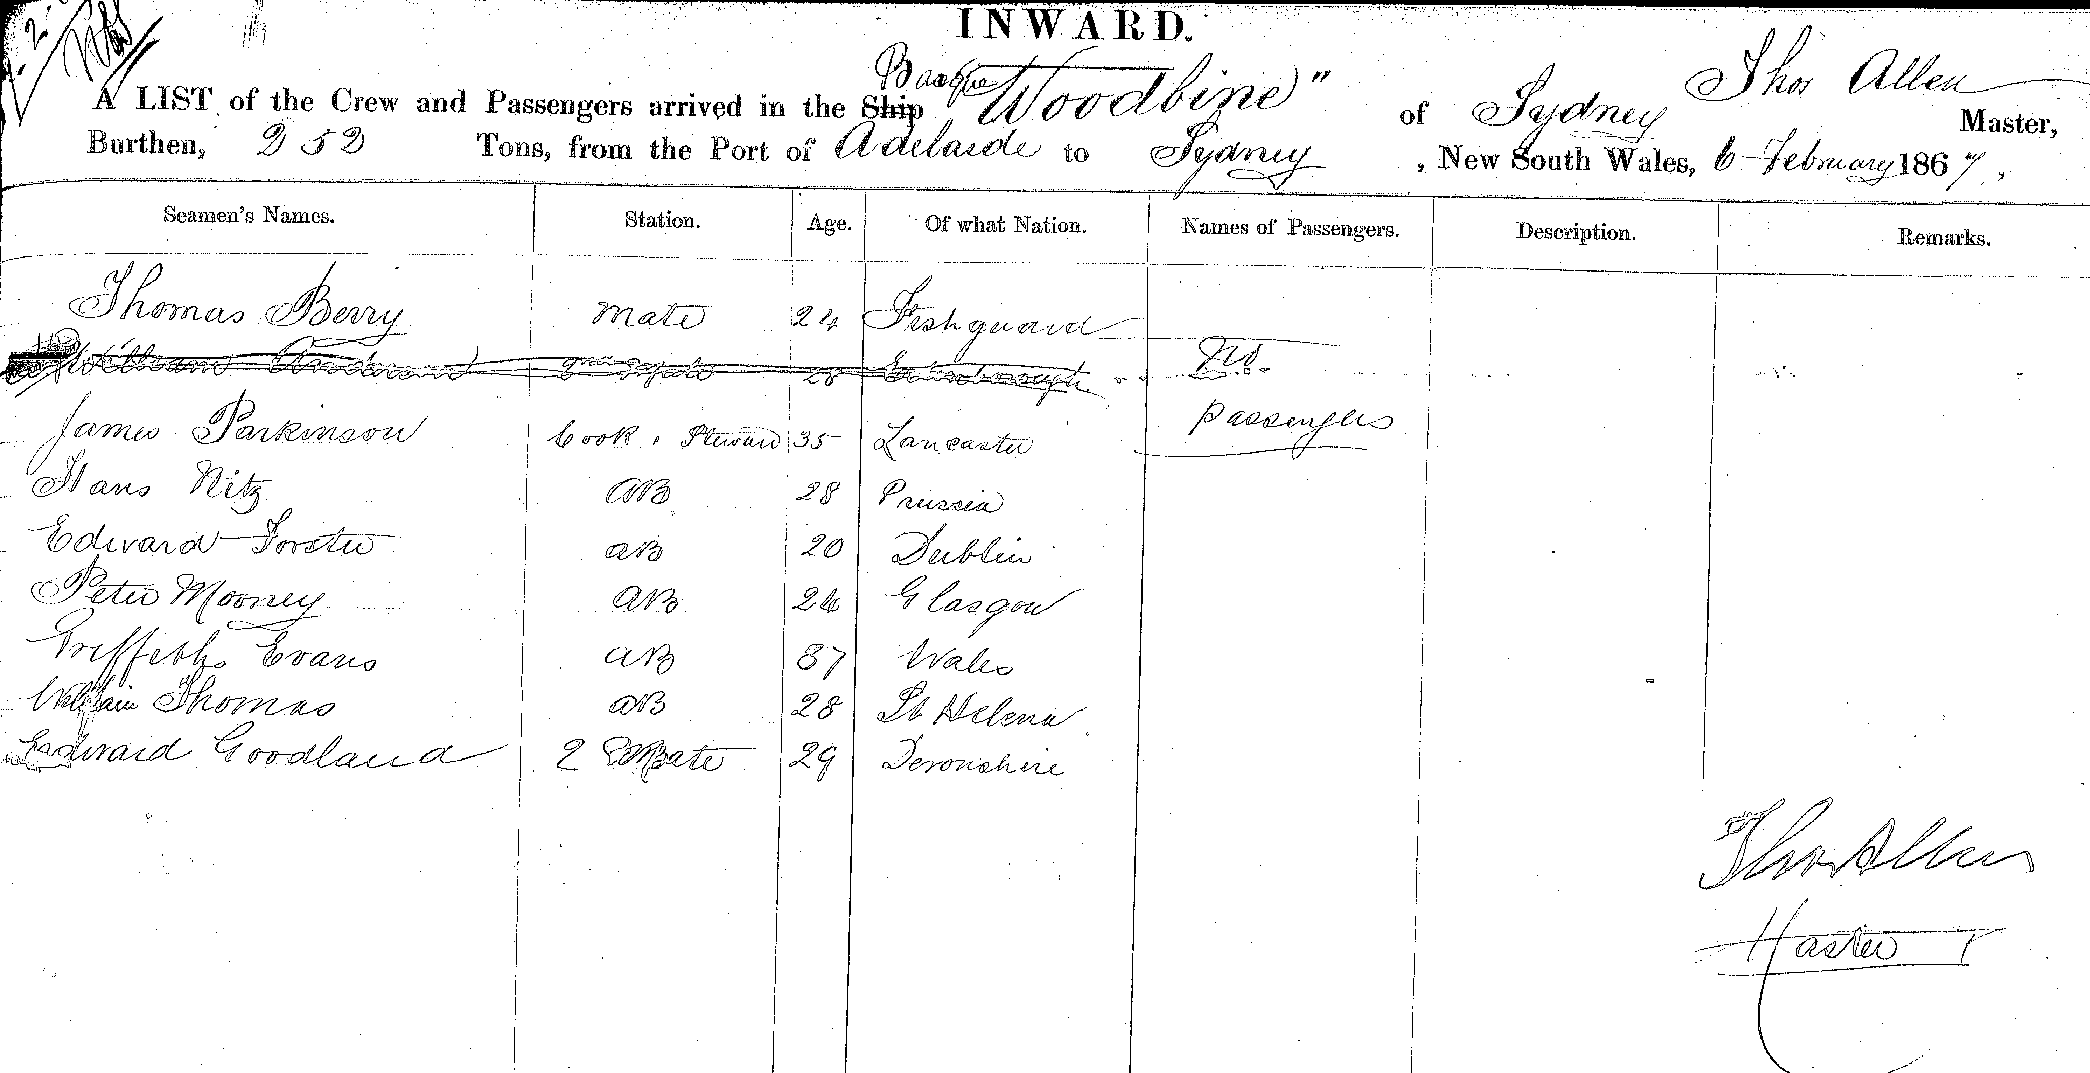 INWARD.
A LIST of the Crew and Passengers arrived in the Ship Barque "Woodbine" of Sydney Thos Allen Master,
Burthen, 252 Tons, from the Port of Adelaide to Sydney, New South Wales, 6 February 1867.
Seamen's Names. Station. Age. Of what Nation. Names of Passengers. Description. Remarks.
Thomas Berry Mate 24 Fishguard
William 2nd Mate 28 Edinborough No
James Parkinson Cook & Steward 35 Lancaster passengers
Hans Nitz AB 28 Prussia
Edward Forster AB 20 Dublin
Peter Mooney AB 24 Glasgow
Griffeths Evans AB 37 Wales
William Thomas AB 28 St Helena
Edward Goodland 2 Mate 29 Devonshire
Thos Allen
Master